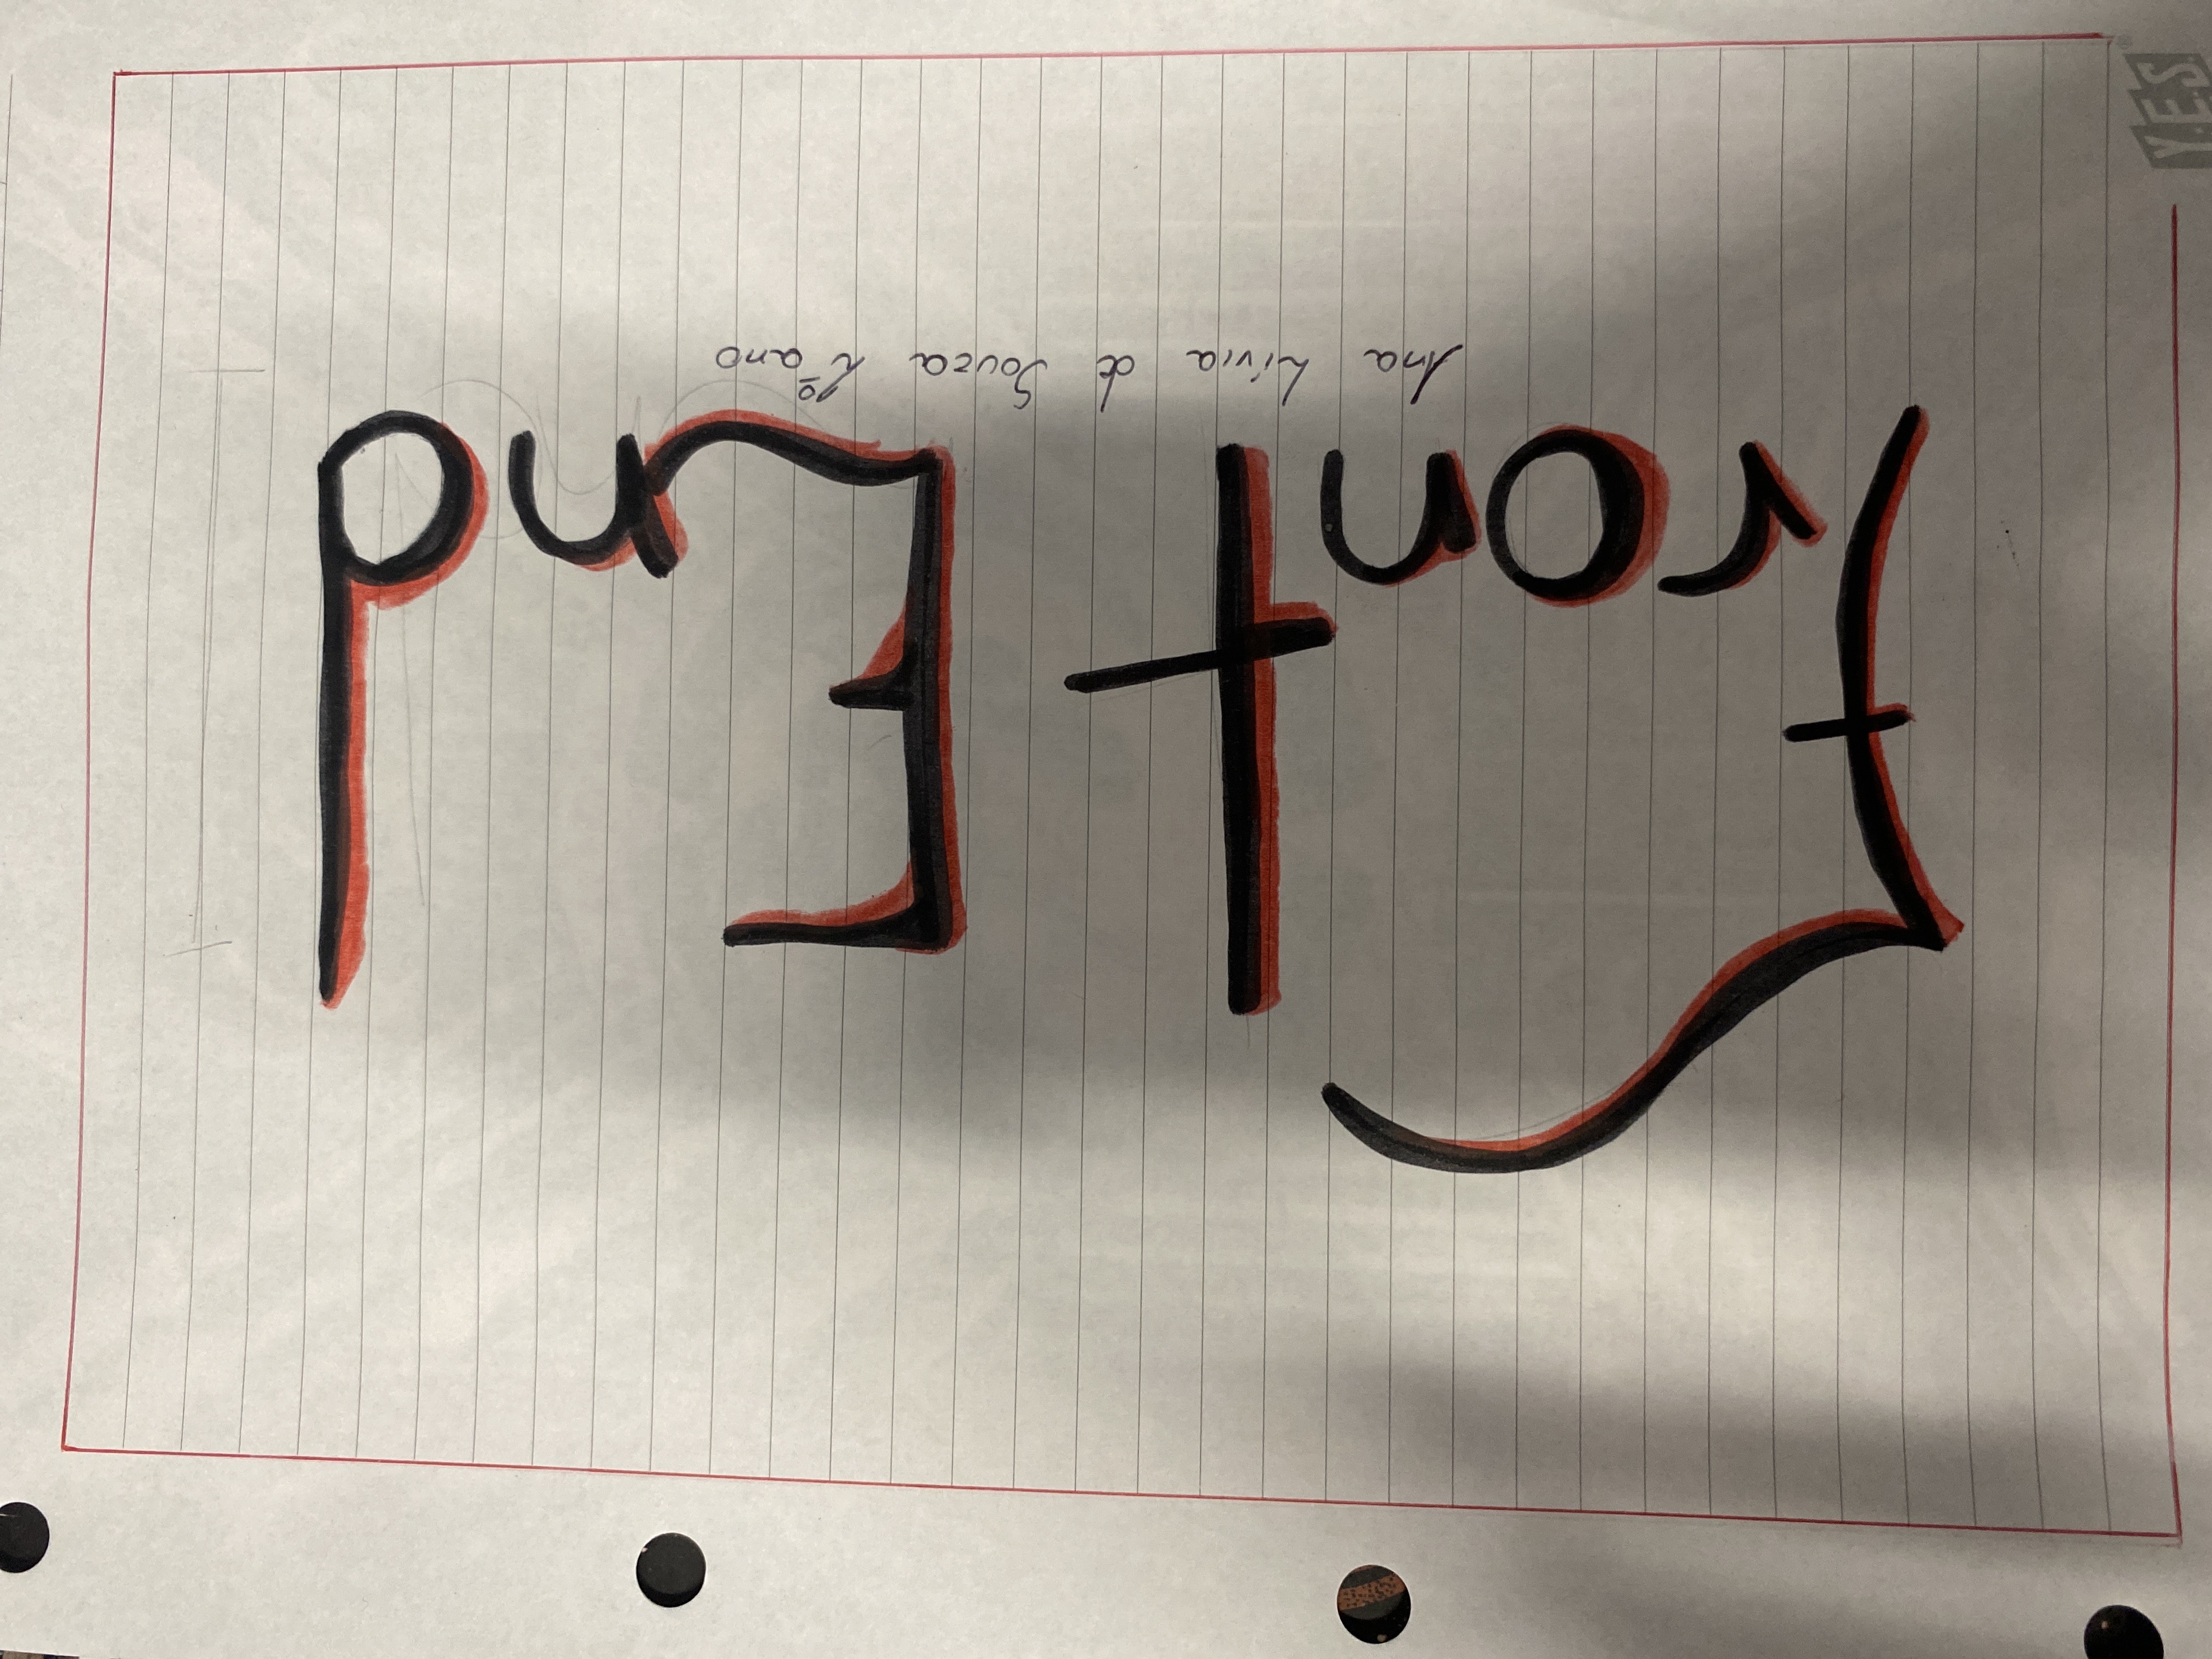 Front End
Ana Lívia de Souza 2º ano
Y.E.S.